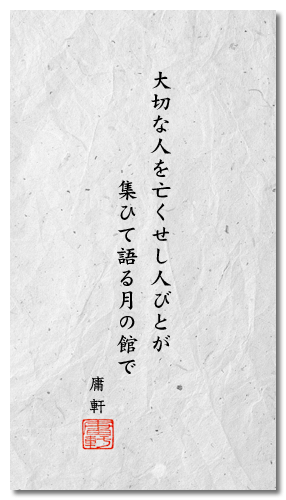 大切な人を亡くせし人びとが
集ひて語る月の館で
庸軒
庸軒